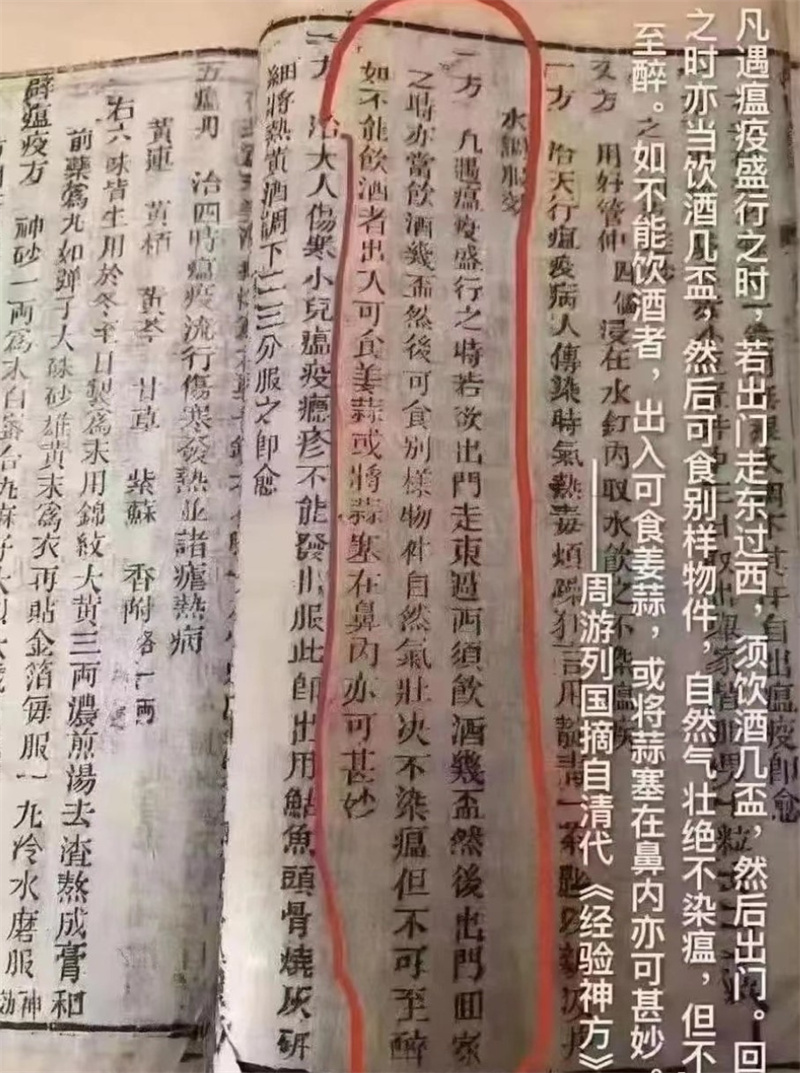 凡遇瘟疫盛行之时，若出门走东过西，须饮酒几盃，然后出门。回
之时亦当饮酒几盃，然后可食别样物件，自然气壮绝不染瘟，但不
至醉。如不能饮酒者，出入可食姜蒜，或将蒜塞在鼻内亦可甚妙。
——周游列国摘自清代《经验神方》
又方
用好管仲四個浸在水缸內取水飲之不染瘟疾
一方 治天行瘟疫病人傳染時氣熱毒煩躁狂言用
水調服
一方 凡遇瘟疫盛行之時若欲出門走東過西須飲酒幾盃然後出門回家
之時亦當飲酒幾盃然後可食别樣物件自然氣壯决不染瘟但不可至醉
如不能飲酒者出入可食姜蒜或將蒜塞在鼻內亦可甚妙
一方 治大人傷寒小兒瘟疫癮疹不能發出服此即出用鮎魚頭骨燒灰研
細將熱黃酒調下二三分服之即愈
五瘟丹 治四時瘟疫流行傷寒發熱並諸瘧熱病
黃連 黃栢 黃芩 甘草 紫蘇 香附各一两
右六味皆生用於冬至日製為末用錦紋大黃三両濃煎湯去渣熬成膏和
前藥為丸如彈子大硃砂雄黃末為衣再貼金箔每服一丸冷水磨服神効
辟瘟疫方 神砂一両為末白蜜合丸麻子大